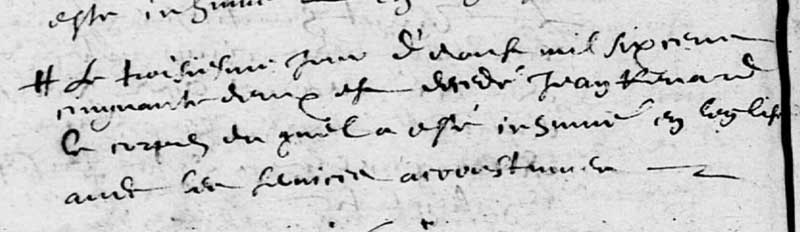 esté inhumé en
# Le troisiesme jour d'aoust mil six cens
cinquante deux est decedé Jean Renard
le corps du quel a esté inhumé en leglise
avec les services accoustumés